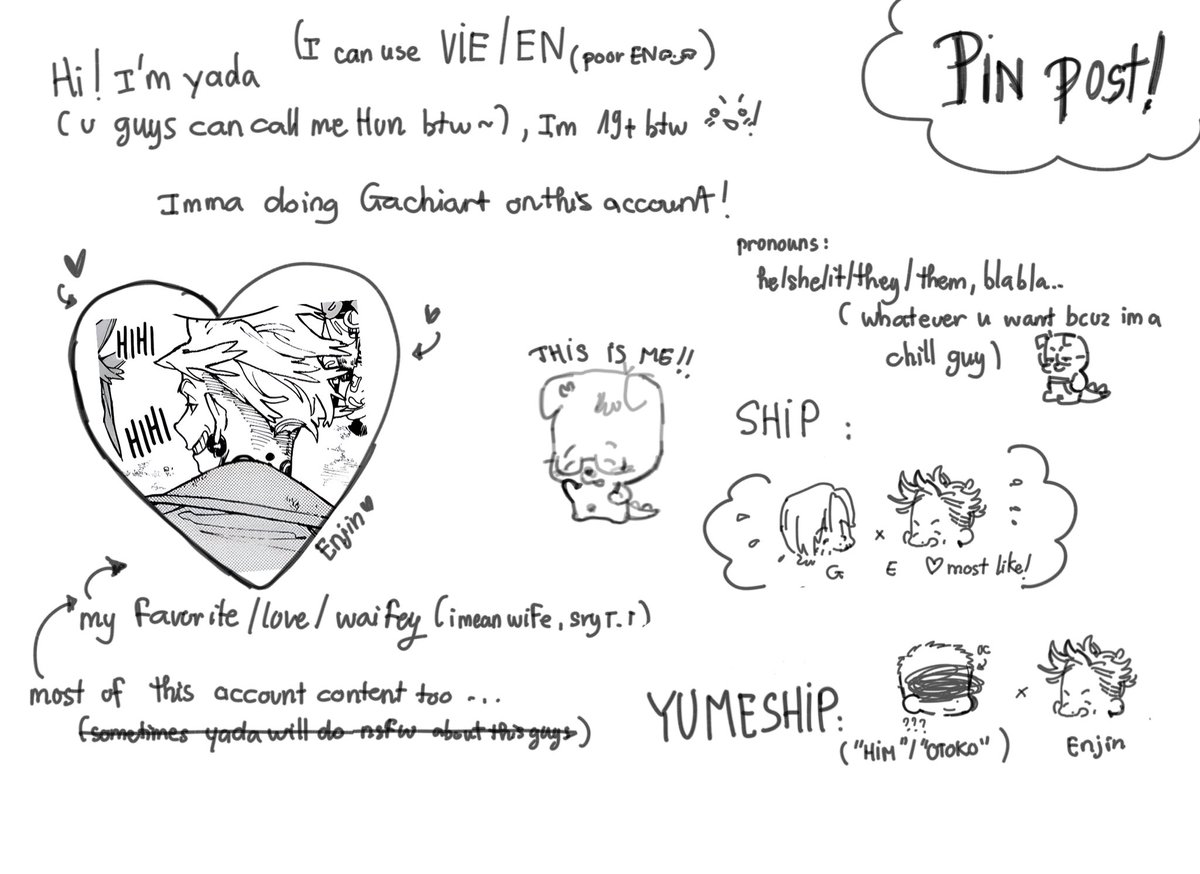 Pin post!
(I can use VIE/EN (poor EN)
Hi! I'm yada
(u guys can call me Hun btw~), Im 19+ btw
Imma doing Gachiart on this account!
HIHI
HIHI
Enjin
my favorite/love/waifey (i mean wife, sry T.T)
most of this account content too ...
(sometimes yada will do nsfw about this guys)
THIS IS ME!!
pronouns:
he/she/it/they/them, blabla..
(whatever u want bcuz im a
chill guy)
SHIP:
G x E most like!
YUMESHIP:
OC
x
???
("HIM"/"OTOKO")
Enjin